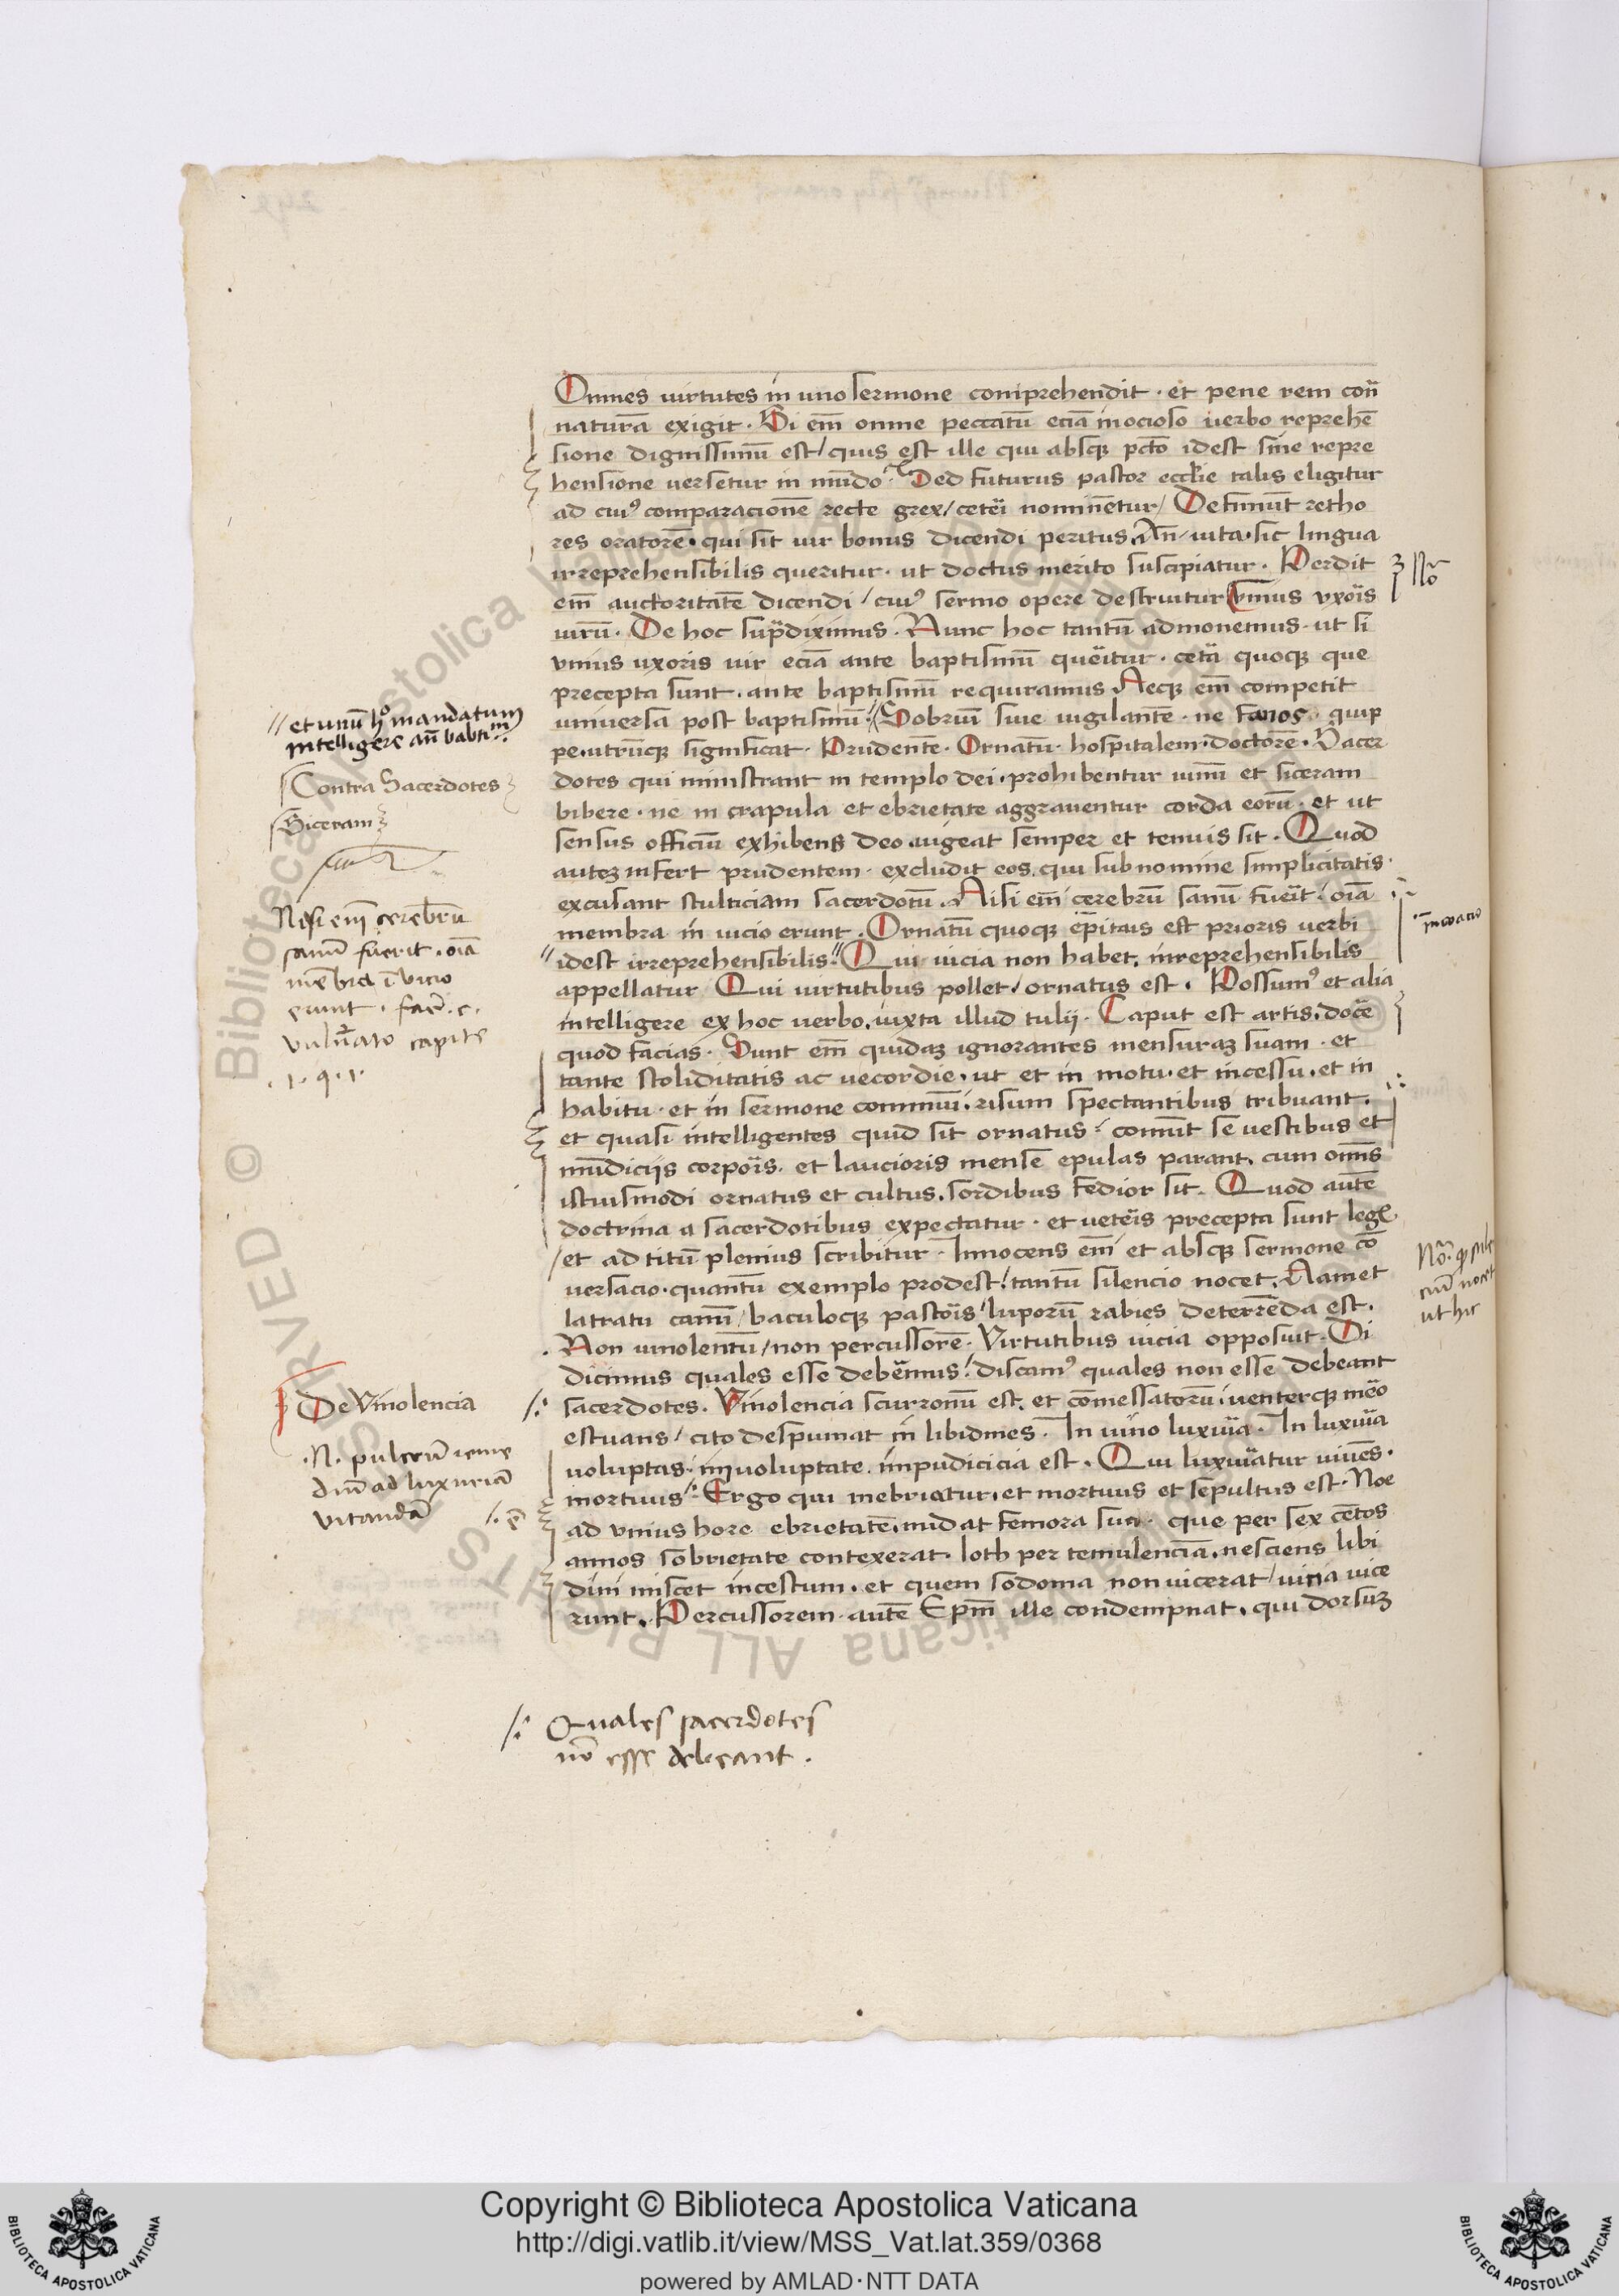 Omnes uirtutes in uno sermone comprehendit · et pene rem con̄
naturā exigit · Si em̄ omne peccatū eciā in ocioso uerbo reprehē
sione dignissimū est / quis est ille qui absq̢ pctō idest sine repre
hensione uersetur in mūdo · Sed futurus pastor ecclie talis eligitur
ad cuiꝰ comparacionē recte grex / ceteri nominētur / Definiūt retho
res oratorē · qui sit uir bonus dicendi peritus · An̄ / uita · sic lingua
irreprehensibilis queritur · ut doctus merito suscipiatur · Perdit
em̄ auctoritatē dicendi / cuiꝰ sermo opere destruitur vnius vxoris
uirū · De hoc supra diximus · Nunc hoc tantū admonemus · ut si
vnius uxoris uir eciā ante baptismū queritur · cetera quoq̢ que
precepta sunt · ante baptismū requiramus Neq̢ em̄ competit
uniuersa post baptismū · Sobriū siue uigilantē · ne fanos · quip
pe · utrūq̢ significat · Prudentē · Ornatū · hospitalem · doctorē · Sacer
dotes qui ministrant in templo dei · prohibentur uinū et siceram
bibere · ne in crapula et ebrietate aggrauentur corda eorū · et ut
sensus officiū exhibens deo uigeat semper et tenuis sit · Quod
autez infert prudentem · excludit eos qui sub nomine simplicitatis ·
excusant stulticiam sacerdotū · Nisi em̄ cerebrū sanū fuerit / oīa
membra in uicio erunt · Ornatū quoq̢ epitaus est prioris uerbi
idest irreprehensibilis · Qui uicia non habet · inreprehensibilis
appellatur Qui uirtutibus pollet / ornatus est · Possumꝰ et alia
intelligere ex hoc uerbo · iuxta illud tulij · Caput est artis · docē
quod facias · Sunt em̄ quidaz ignorantes mensuraz suam · et
tante stoliditatis ac uecordie · ut et in motu · et incessu · et in
habitu · et in sermone communi · risum spectantibus tribuant ·
et quasi intelligentes quid sit ornatus · comūt se uestibus et
mūdicijs corporis · et laucioris mense epulas parant · cum om̄s
istiusmodi ornatus et cultus · sordibus fedior sit · Quod autē
doctrina a sacerdotibus expectatur · et ueteris precepta sunt leg
/ et ad titū plenius scribitur · Innocens em̄ et absq̢ sermone cō
uersacio · quantū exemplo prodest · tantū silencio nocet · Nam et
latratu canū / baculoq̢ pastoris / luporū rabies deterrēda est ·
· Non uinolentū / non percussorē · Virtutibus uicia opposuit · Si
dicimus quales esse debemus / discamꝰ quales non esse debeant
sacerdotes · Vinolencia scurronū est · et comessatorū · uenterq̢ mero
estuans / cito despumat in libidines · In uino luxuria · In luxuria
uoluptas · in uoluptate · impudicicia est · Qui luxuriatur uiuēs ·
mortuus · Ergo qui inebriatur · et mortuus et sepultus est · Noe
ad vnius hore ebrietatē · nudat femora sua · que per sex cētos
annos sobrietate contexerat · loth per temulenciā · nesciens libi
dini miscet incestum · et quem sodoma non uicerat / uina uice
runt · Percussorem · autē Epm̄ ille condempnat · qui dorsuz
// et unū hꝰ mandatum
intelligere an̄ babtim
Contra Sacerdotes
Siceram
Nisi enī cerebrū
sanū fuerit · oīa
mēbra ī vicio
erunt · facit · c ·
vulnerato capite
· 1 · q · 1 ·
De Vinolencia
· N · pulcrū reme
diū ad luxuriā
vitandā
Nō
inuocatio
Nō · qp sile
ciū nocet
ut hic
Quales sacerdotes
nō esse debeant ·
Copyright © Biblioteca Apostolica Vaticana
http://digi.vatlib.it/view/MSS_Vat.lat.359/0368
powered by AMLAD·NTT DATA
BIBLIOTECA APOSTOLICA VATICANA
BIBLIOTECA APOSTOLICA VATICANA